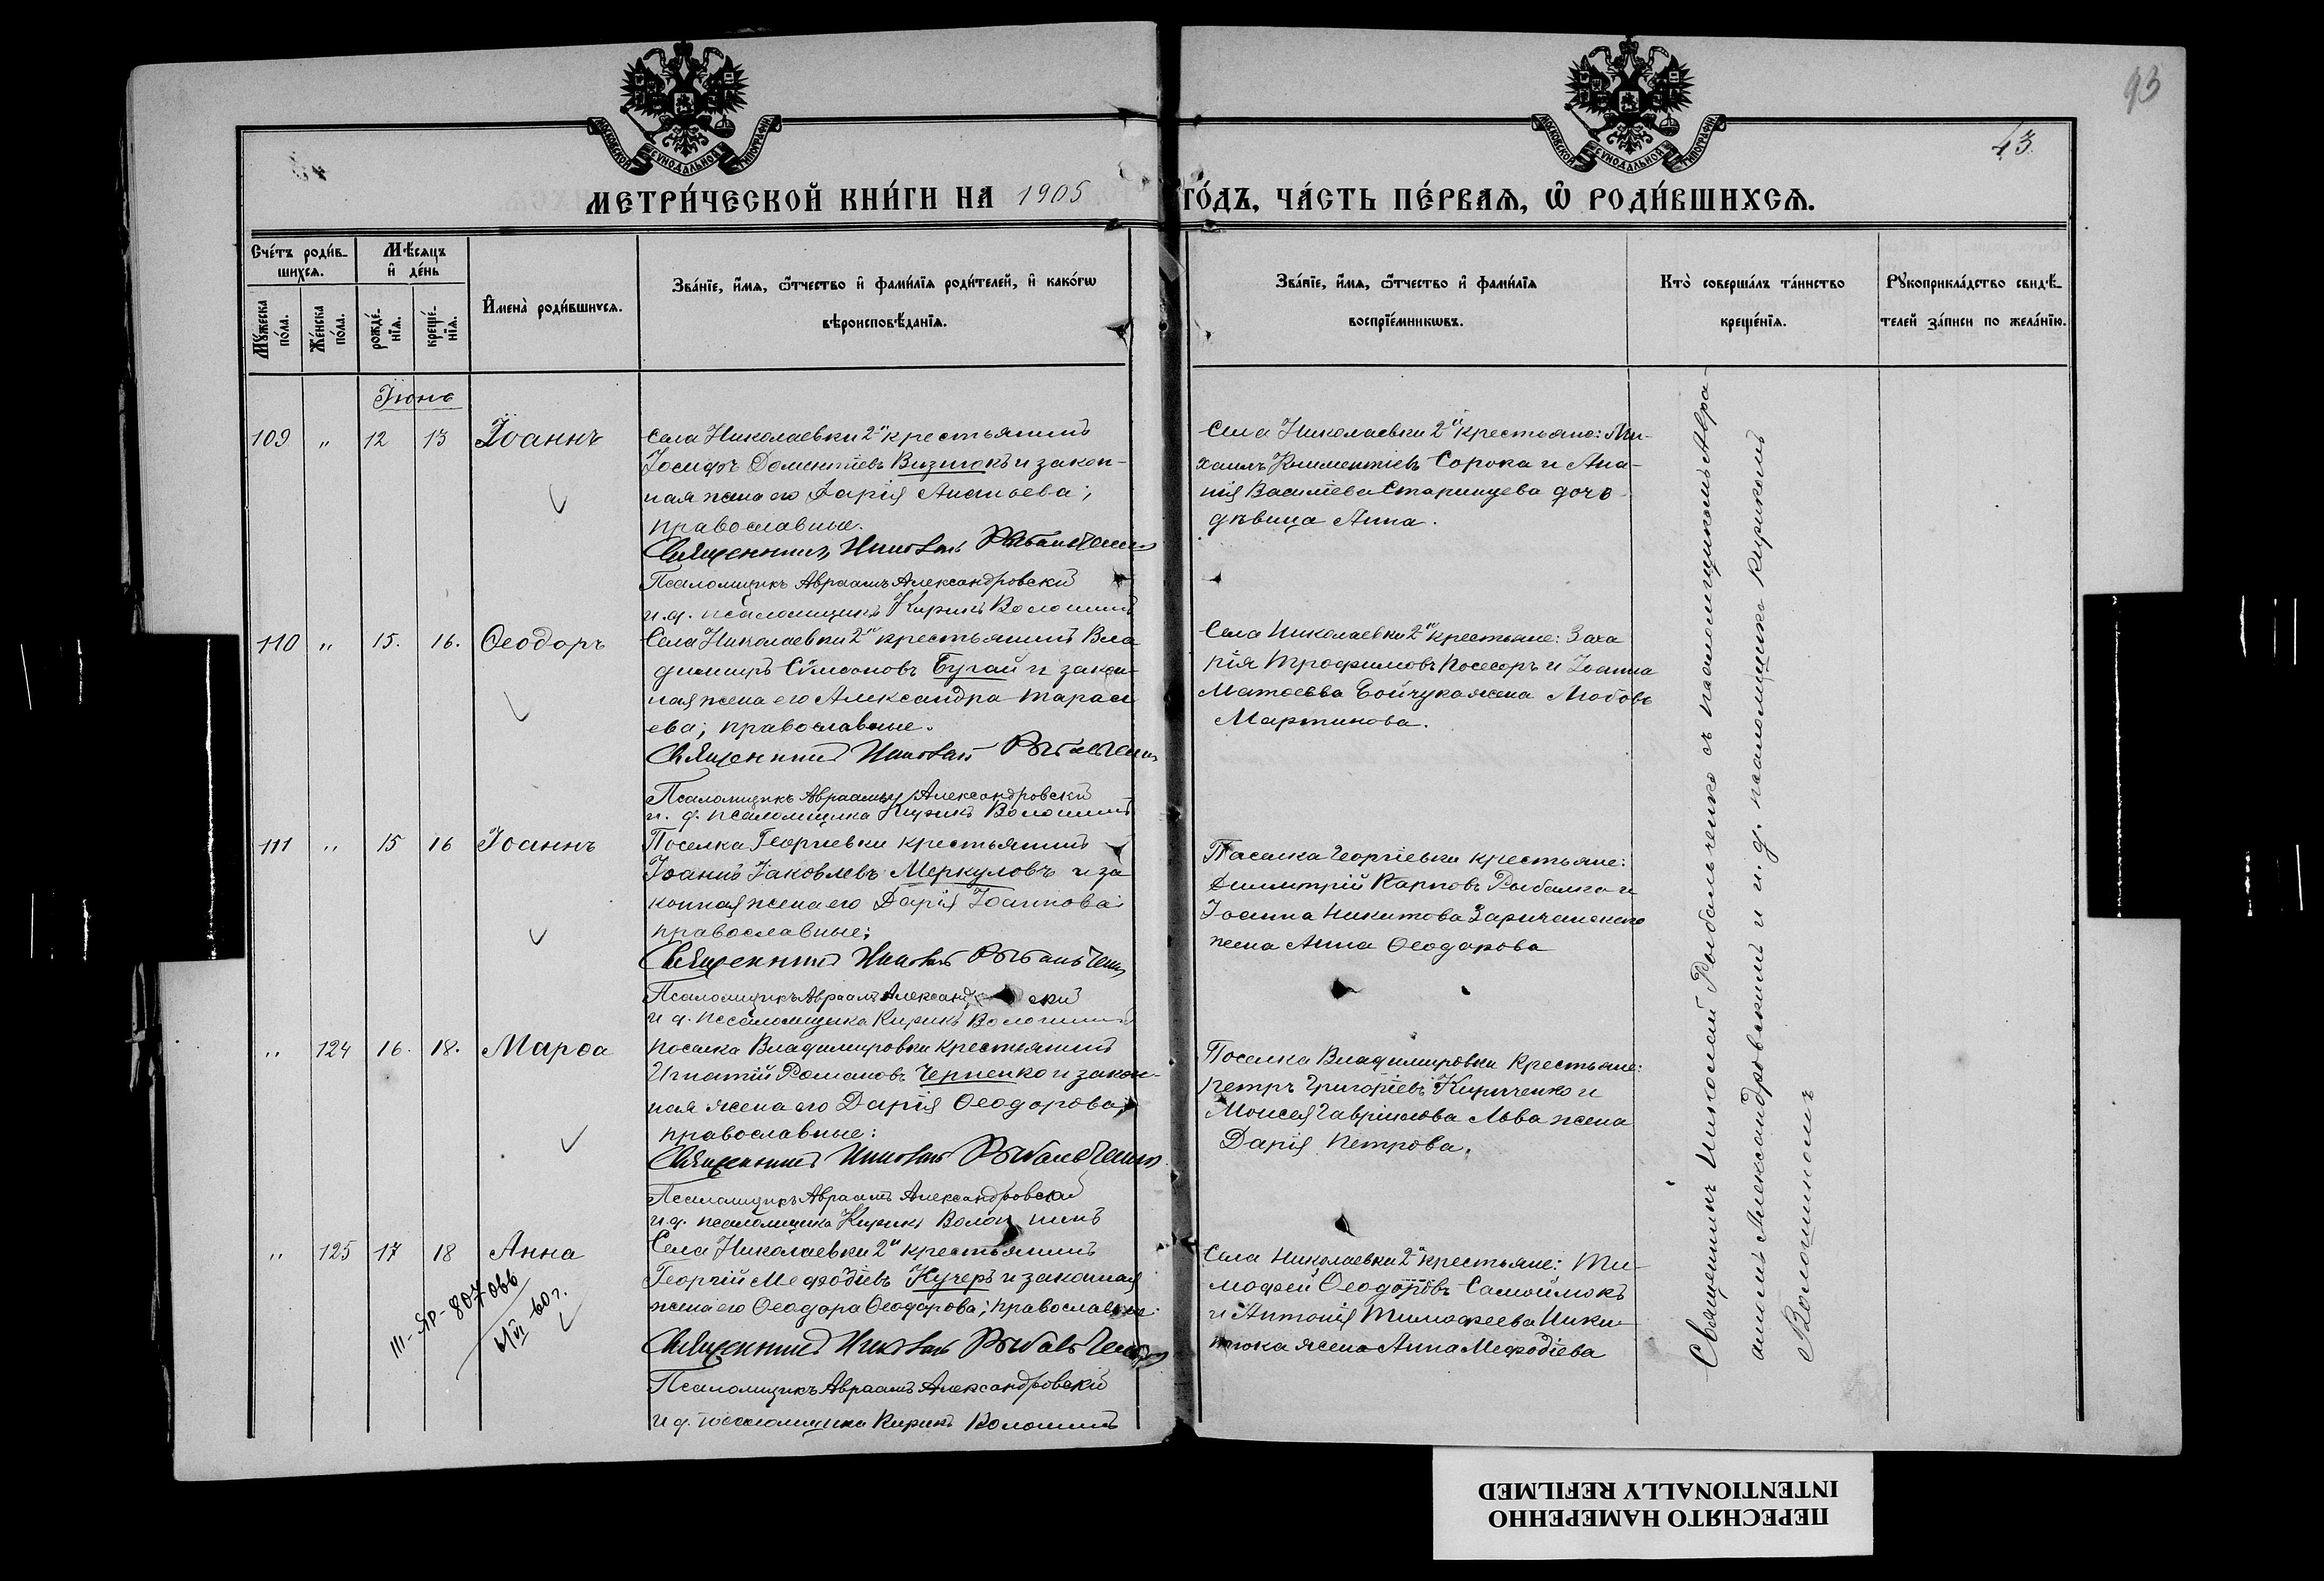 93
43
МОСКОВСКОЙ СѴНОДАЛЬНОЙ ТИПОГРАФІИ
МОСКОВСКОЙ СѴНОДАЛЬНОЙ ТИПОГРАФІИ
МЕТРИ́ЧЕСКОЙ КНИ́ГИ НА 1905 ГО́ДЪ, ЧА́СТЬ ПЕ́РВАѦ, Ѡ҆ РОДИ́ВШИХСѦ.
Сче́тъ роди́в-
шихсѧ.
Мꙋ́жеска по́ла.
Же́нска по́ла.
Мѣ́сѧцъ
и҆ де́нь
рожде́-
нїѧ.
креще́-
нїѧ.
И҆мена̀ роди́вшихсѧ.
Зва́нїе, и҆́мѧ, ѻ҆́тчество и҆ фами́лїѧ роди́телей, и҆ како́гѡ
вѣроисповѣ́данїѧ.
Зва́нїе, и҆́мѧ, ѻ҆́тчество и҆ фами́лїѧ
воспрїе́мникѡвъ.
Кто̀ соверша́лъ та́инство
креще́нїѧ.
Рꙋкоприкла́дство свидѣ́-
телей за́писи по жела́нїю.
Іюнь
109 " 12 13 Іоаннъ
Села Николаевки 2й крестьянинъ
Іосифъ Доментіевъ Визнюкъ и закон-
ная жена его Дарія Ананьева;
православные.
Священникъ Николай Рыбальченко
Псаломщикъ Авраамъ Александровскій
и.д. псаломщика Кирикъ Волошинъ
Села Николаевки 2й крестьяне: Ми-
хаилъ Климентіевъ Сорока и Ана-
нія Василіева Старинцева дочь
дѣвица Анна.
110 " 15. 16. Ѳеодоръ
Села Николаевки 2й крестьянинъ Вла
димиръ Сѵмеоновъ Бугай и закон-
ная жена его Александра Тарасі
ева; православные.
Священникъ Николай Рыбальченко
Псаломщикъ Авраамъ Александровскій
и. д. псаломщика Кирикъ Волошинъ
Села Николаевки 2й крестьяне: Заха
рія Трофимовъ Посесоръ и Іоанна
Матѳеева Бойчука жена Любовь
Мартинова.
111 " 15 16 Іоаннъ
Поселка Георгіевки крестьянинъ
Іоаннъ Іаковлевъ Меркуловъ и за
конная жена его Дарія Іоаннова;
православные;
Священникъ Николай Рыбальченко
Псаломщикъ Авраамъ Александровскій
и д. псаломщика Кирикъ Волошинъ
Поселка Георгіевки крестьяне:
Димитрій Карповъ Рыбалка и
Іоанна Никитова Заричанскаго
жена Анна Ѳеодорова
" 124 16. 18. Марѳа
Поселка Владимировки крестьянинъ
Игнатій Романовъ Черненко и закон-
ная жена его Дарія Ѳеодорова;
православные:
Священникъ Николай Рыбальченко
Псаломщикъ Авраамъ Александровскій
и.д. псаломщика Кирикъ Волошинъ
Поселка Владимировки крестьяне:
Петръ Григоріевъ Кириченко и
Моисея Гавриилова Льва жена
Дарія Петрова.
" 125 17 18 Анна
III-ЯР-807066
60 г.
Села Николаевки 2й крестьянинъ
Георгій Меѳодіевъ Кучеръ и законная
жена его Ѳеодора Ѳеодорова; православные
Священникъ Николай Рыбальченко
Псаломщикъ Авраамъ Александровскій
и д. псаломщика Кирикъ Волошинъ
Села Николаевки 2й крестьяне: Ти-
мофей Ѳеодоровъ Самойлюкъ
и Антонія Тимофеева Ники-
тюка жена Анна Меѳодіева
Священникъ Николай Рыбальченко съ псаломщикомъ Авра-
амомъ Александровскимъ и и. д. псаломщика Кирикомъ
Волошиномъ
ПЕРЕСНЯТО НАМЕРЕННО
INTENTIONALLY REFILMED